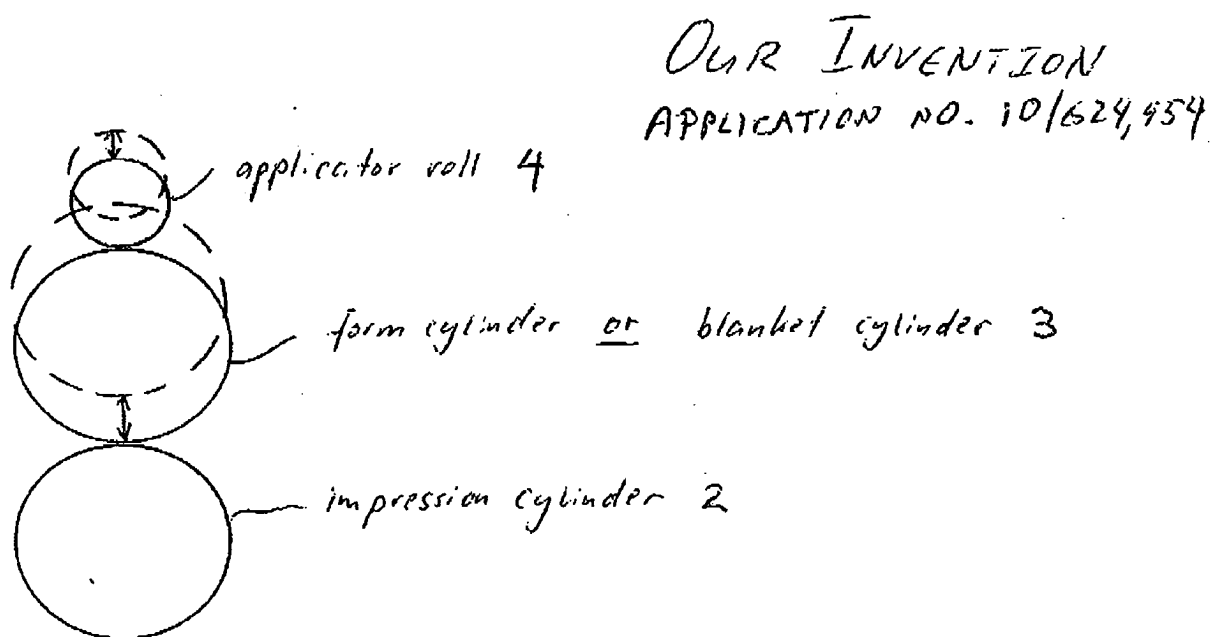 OUR INVENTION
APPLICATION NO. 10/624,954
applicator roll 4
form cylinder or blanket cylinder 3
impression cylinder 2